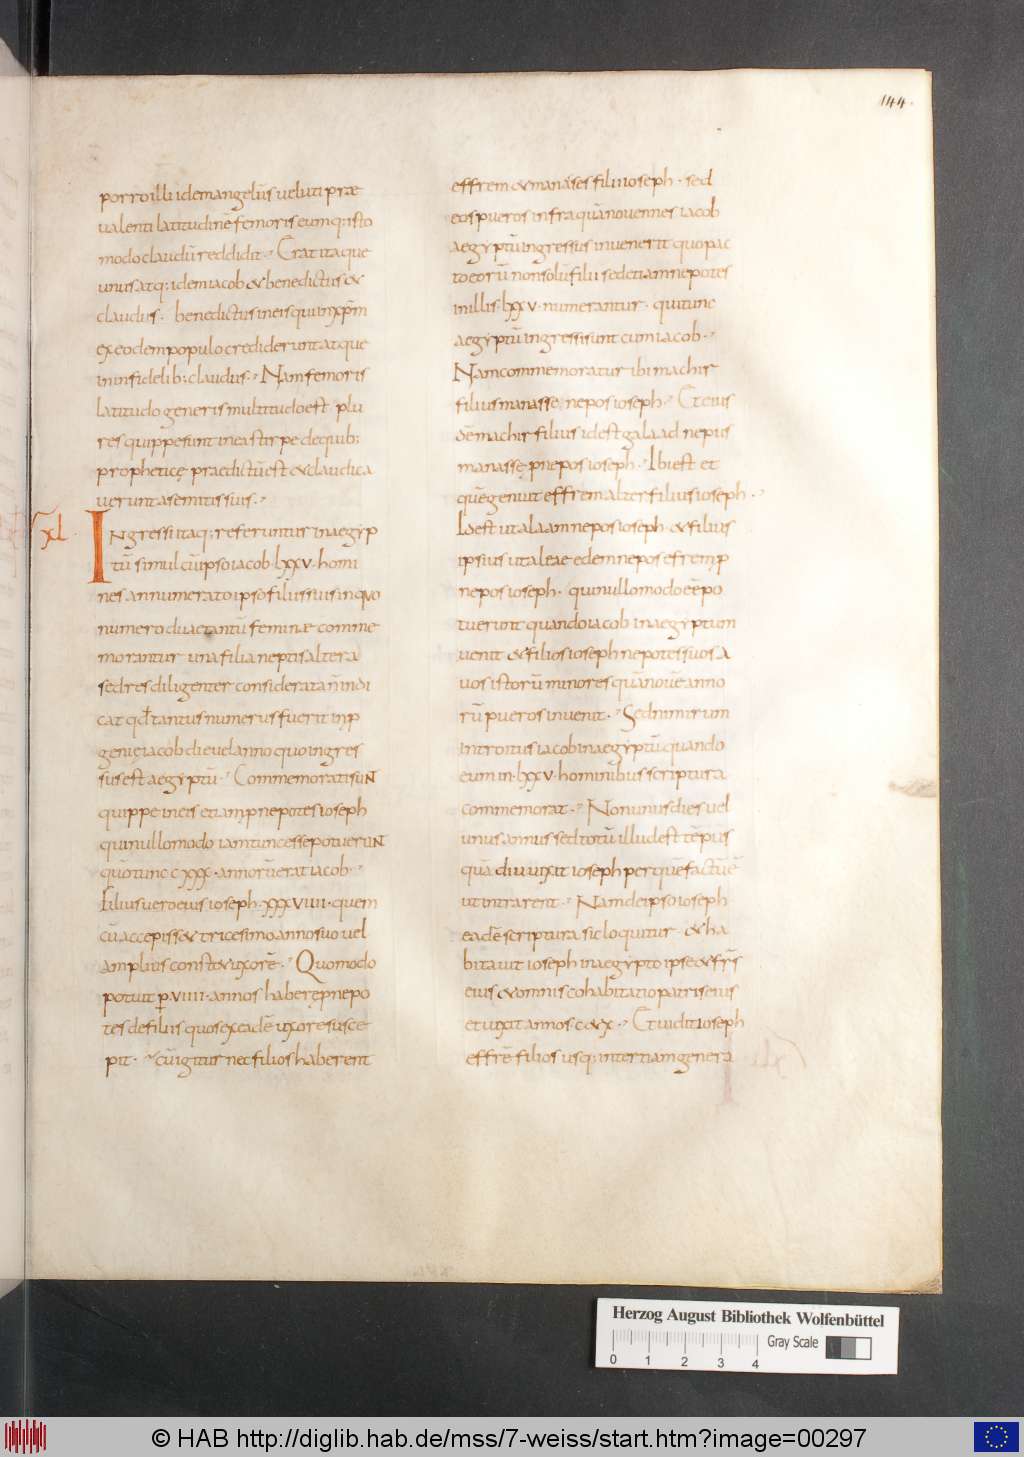 144.
porro illi idem angelus ueluti prae
ualenti latitudinē femoris eumq: isto
modo claudū reddidit. Erat itaque
unus atq: idem iacob & benedictus &
claudus. benedictus in eis qui in xp̄m
ex eodem populo crediderunt atque
in infidelib: claudus. Nam femoris
latitudo generis multitudo est. plu
res quippe sunt in ea stirpe de quib:
propheticę praedictū est & claudica
uerunt a semitis suis.
xl.
INgressi itaq: referuntur in aegyp
tū simul cū ipso iacob lxxv. homi
nes annumerato ipso filiis suis in quo
numero duae tantū feminae comme
morantur una filia neptis altera
sed res diligenter considerata n̄ indi
cat qđ tantus numerus fuerit in p
genie iacob die uel anno quo ingres
sus est aegyptū. CommemoratisuN
quippe in eis etiam pnepotes ioseph
qui nullo modo iam tunc esse potueruN
quō tunc cxxx. annorū erat iacob.
Filius uero eius ioseph. xxxviiii. quem
cū accepisse tricesimo anno suo uel
amplius constet uxorē. Quomodo
potuit p. viiii. annos habere pnepo
tes de filiis quos ex eadē uxore susce
pit. cū igitur nec filios haberent
effrem & manases filii ioseph. sed
eos pueros infra quā nouennes iacob
aegyptū ingressus inuenerit quo pac
to eorū non solū filii sed etiam nepotes
in illis lxxv. numerantur. qui tunc
aegyptū ingressi sunt cum iacob.
Nam commemoratur ibi machir
filius manasse, nepos ioseph. Et eius
dē machir filius id est galaad nepus
manassę pnepos ioseph. Ibi est et
quē genuit effrem alter filius ioseph.
Id est utalaam nepos ioseph. & filius
ipsius utalae edem nepos efrem p
nepos ioseph. qui nullo modo eē po
tuerunt quando iacob in aegyptum
uenit & filios ioseph nepotes suos a
uos istorū minores quā nouē anno
rū pueros inuenit. Sed nimirum
introitus iacob in aegyptū quando
eum in lxxv. hominibus scriptura
commemorat. Non unus dies uel
unus annus sed totū illud est tēpus
quādiu uixit ioseph per quē factū ē
ut intrarent. Nam de ipso ioseph
eadē scriptura sic loquitur. & ha
bitauit ioseph in aegypto ipse & frs̄
eius & omnis cohabitatio patris eius
et uixit annos c & x. Et uidit ioseph
effrē filios usq: in tertiam genera
Herzog August Bibliothek Wolfenbüttel
Gray Scale
0 1 2 3 4
© HAB http://diglib.hab.de/mss/7-weiss/start.htm?image=00297